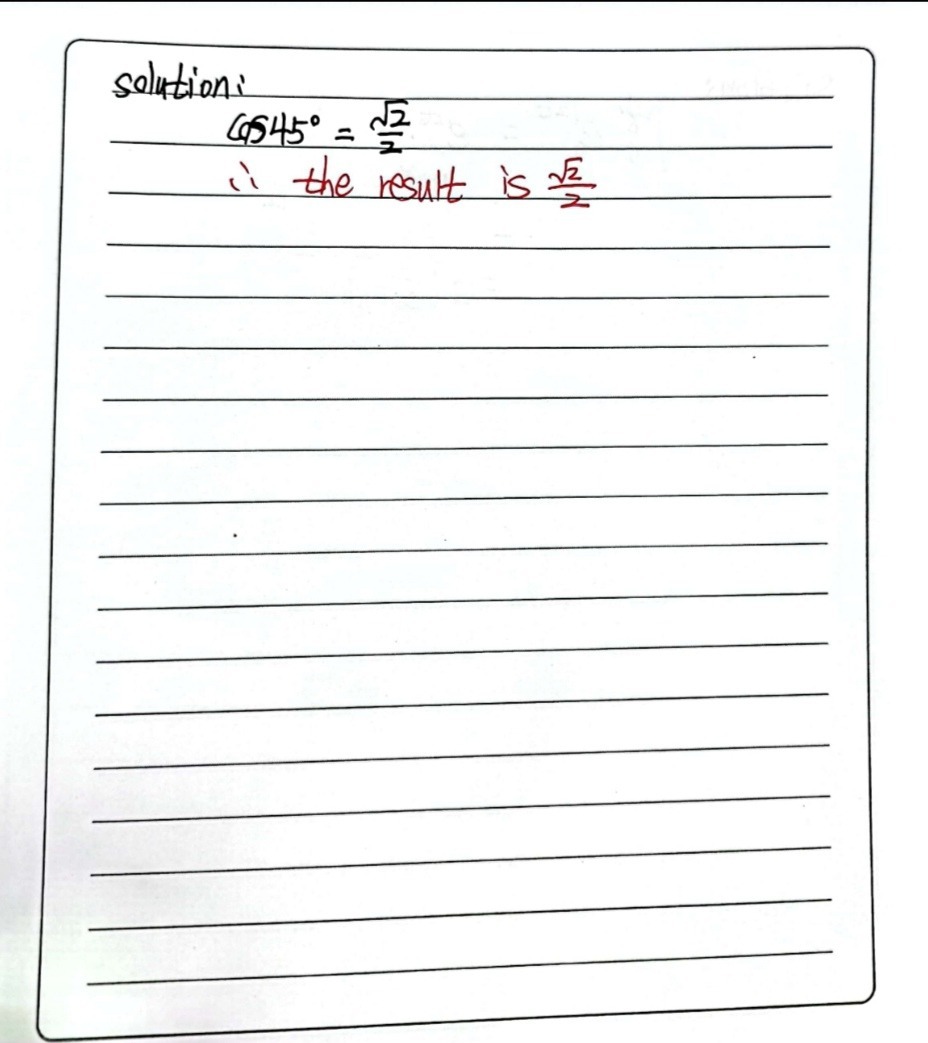 solution:
cos45° = √2/2
∴ the result is √2/2